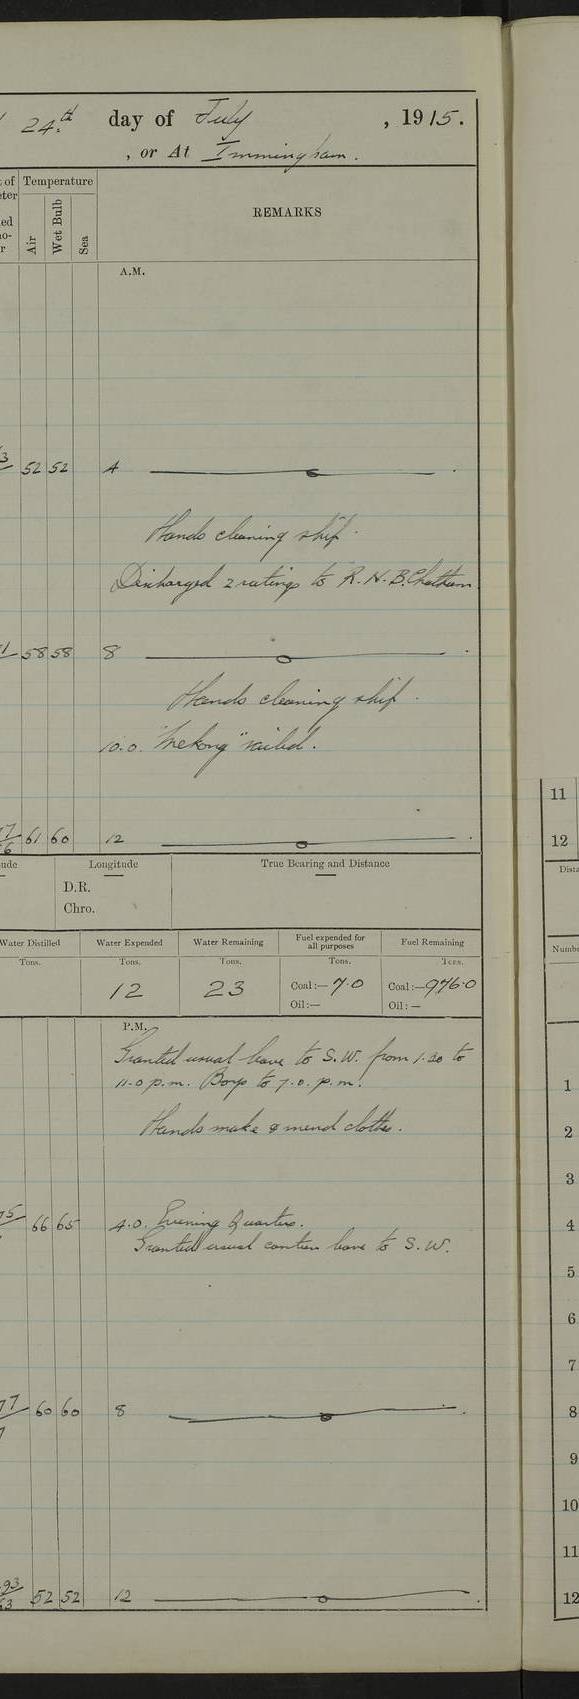 24th day of July , 1915.
, or At Immingham.
Temperature
Air
Wet Bulb
Sea
REMARKS
A.M.
52 52 4
Hands cleaning ship.
Discharged 2 ratings to R.N.B. Chatham.
58 58 8
Hands cleaning ship.
10.0. "Mekong" sailed.
61 60 12
Longitude
True Bearing and Distance
D.R.
Chro.
Water Distilled
Water Expended
Water Remaining
Fuel expended for all purposes
Fuel Remaining
Tons.
Tons.
Tons.
Tons.
Tons.
12
23
Coal:— 7.0
Coal:— 976.0
Oil:—
Oil:—
P.M.
Granted usual leave to S.W. from 1.30 to
11.0 p.m. Boys to 7.0. p.m.
Hands make & mend clothes.
66 65 4.0. Evening Quarters.
Granted usual canteen leave to S.W.
60 60 8
52 52 12
11
12
Dista
Numbe
1
2
3
4
5
6
7
8
9
10
11
12